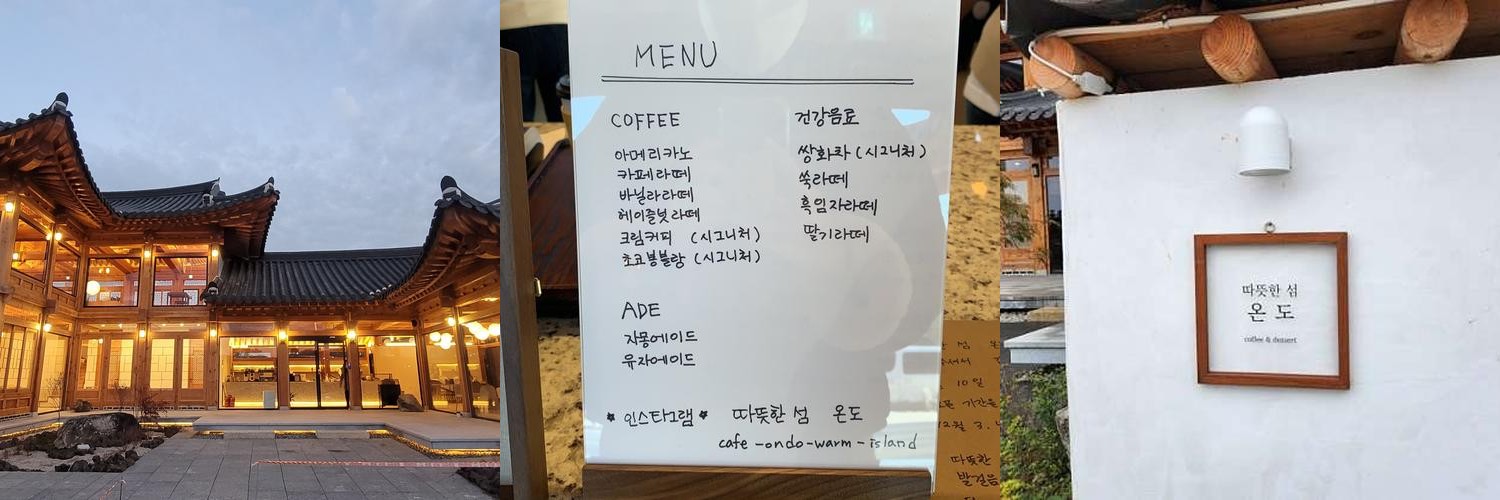 MENU
COFFEE
아메리카노
카페라떼
바닐라라떼
헤이즐넛라떼
크림커피 (시그니처)
초코봉봉랑 (시그니처)
ADE
자몽에이드
유자에이드
건강음료
쌍화차 (시그니처)
쑥라떼
흑임자라떼
딸기라떼
인스타그램 따뜻한 섬 온도
cafe-ondo-warm-island
10일
기간은
12월 3.
따뜻한
발걸음
따뜻한 섬
온도
coffee & dessert